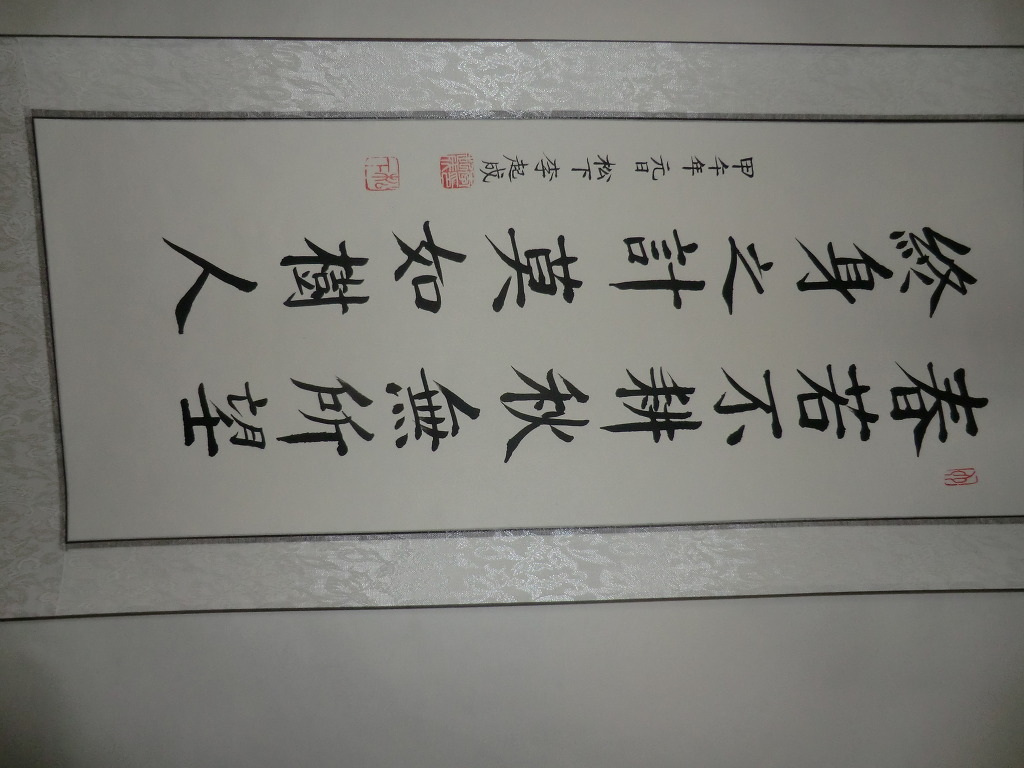 春若不耕秋無所望
終身之計莫如樹人
甲午年元日 松下 李起成